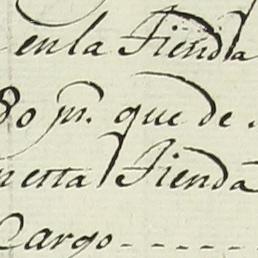 en la Tienda
80 ps. que de
netta Tienda
Cargo - - - - -